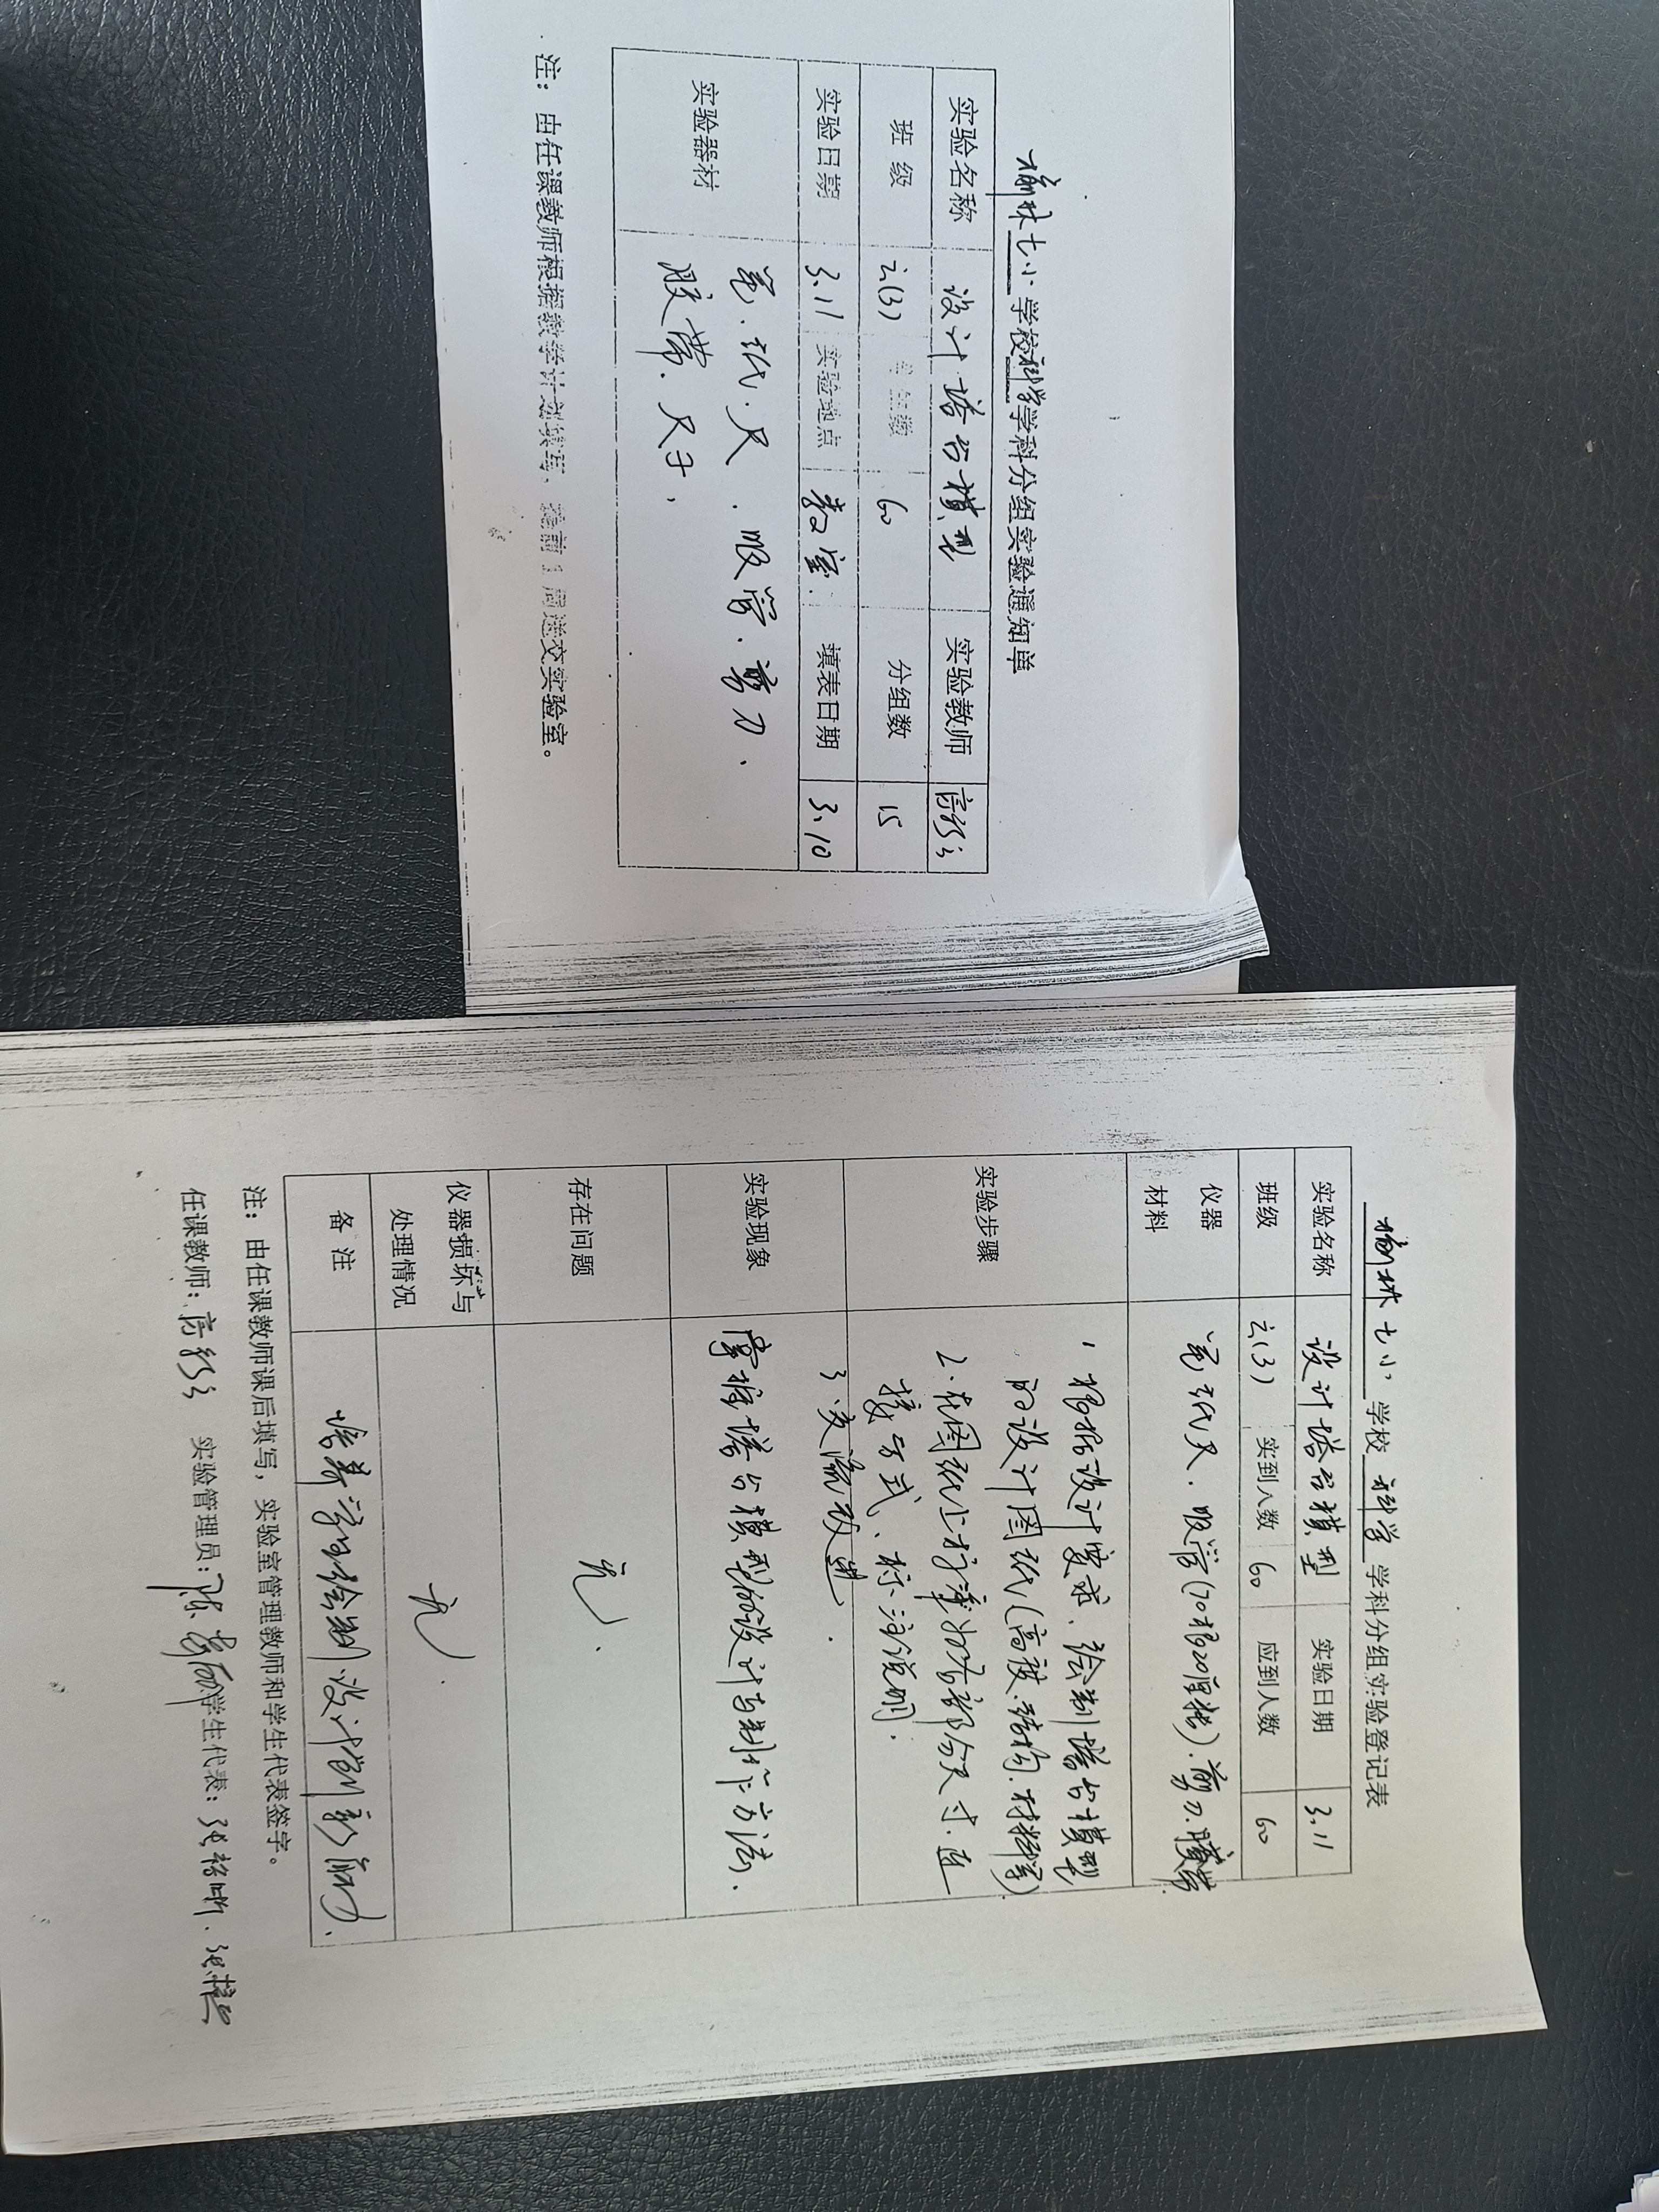 榆林七小 学校 科学 学科分组实验通知单
实验名称 设计塔台模型 实验教师
班 级 六(3) 学生数 60 分组数 15
实验日期 3.11 实验地点 教室. 填表日期 3.10
实验器材 笔.纸.尺.吸管.剪刀、
胶带.尺子、
注：由任课教师根据教学计划填写，提前1周送交实验室。
榆林七小 学校 科学 学科分组实验登记表
实验名称 设计塔台模型 实验日期 3.11
班级 六(3) 实到人数 60 应到人数 60
仪器
材料 笔纸尺.吸管(70根20厘长).剪刀.胶带
实验步骤 1 根据设计要求、绘制塔台模型
的设计图纸(高度.结构.材料等)
2.在图纸上 各部分尺寸.连
接方式、标注说明；
3.交流改进.
实验现象 掌握塔台模型的设计与制作方法.
存在问题 无.
仪器损坏与
处理情况 无.
备 注 培养学生绘制设计创新 .
注：由任课教师课后填写，实验室管理教师和学生代表签字。
任课教师： 实验管理员：陈 学生代表：张 、张